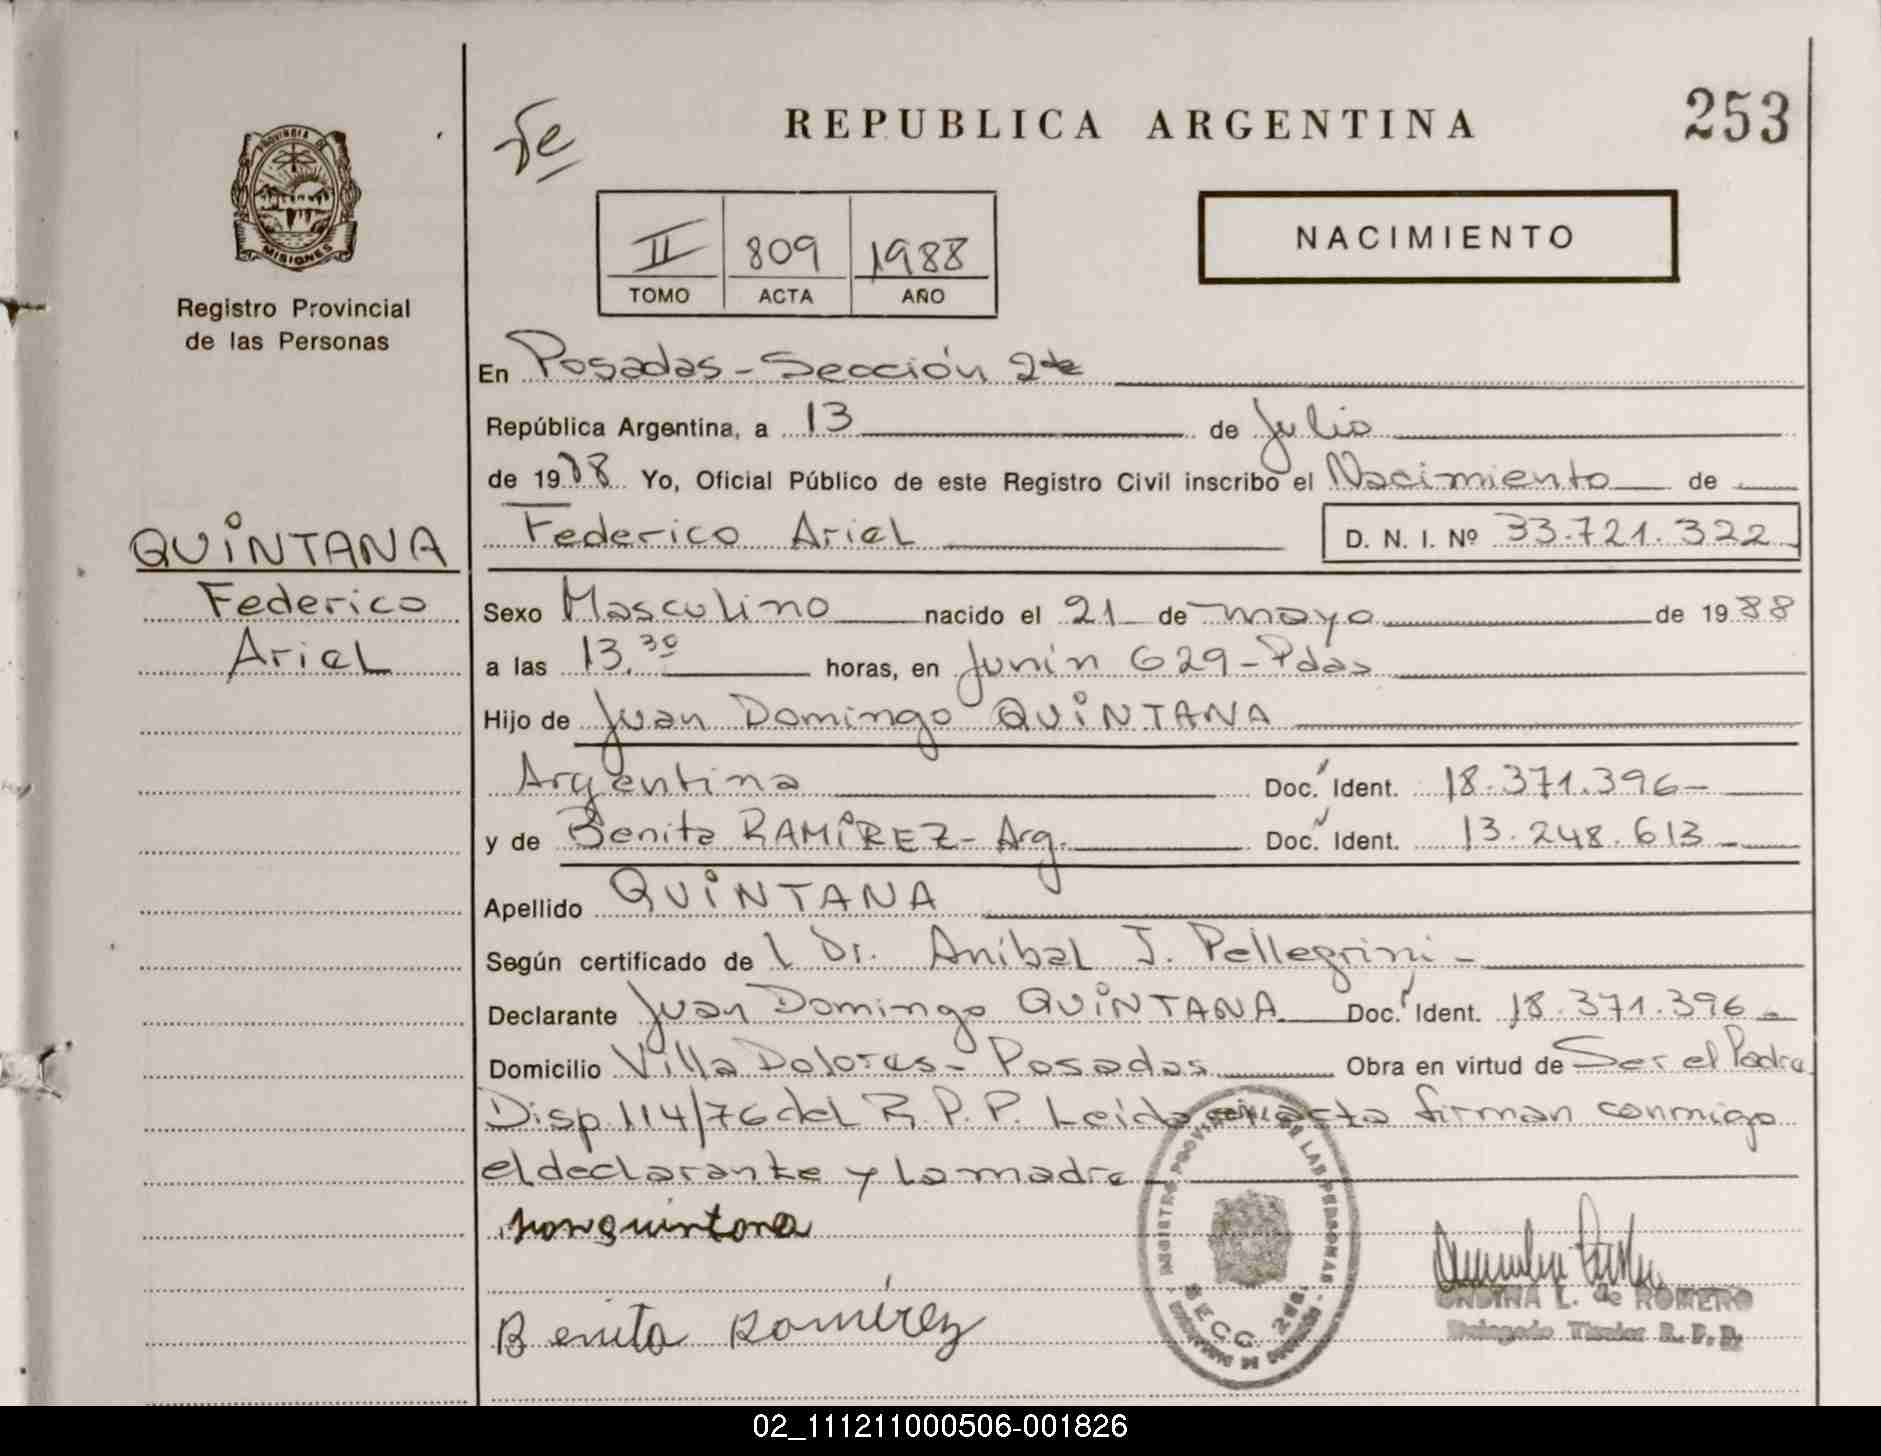 253
REPUBLICA ARGENTINA
PROVINCIA DE
MISIONES
Registro Provincial
de las Personas
NACIMIENTO
II 809 1988
TOMO ACTA AÑO
En Posadas - Sección 2da
República Argentina, a 13 de Julio
de 1988 Yo, Oficial Público de este Registro Civil inscribo el Nacimiento de
Federico Ariel D. N. I. Nº 33.721.322
QUINTANA
Federico
Ariel
Sexo Masculino nacido el 21 de mayo de 1988
a las 13.30 horas, en Junín 629 - Pdas
Hijo de Juan Domingo QUINTANA
Argentina Doc. Ident. 18.371.396-
y de Benita RAMÍREZ - Arg. Doc. Ident. 13.248.613-
Apellido QUINTANA
Según certificado de l Dr. Aníbal J. Pellegrini -
Declarante Juan Domingo QUINTANA Doc. Ident. 18.371.396-
Domicilio Villa Dolores - Posadas Obra en virtud de Ser el Padre
Disp. 114/76 del R. P. P. Leída el acta firman conmigo
el declarante y la madre
Benita Ramírez
REGISTRO PROVINCIAL DE LAS PERSONAS
SECC. 2da.
ONDINA L. de ROMERO
Delegado Titular R. P. P.
02_111211000506-001826